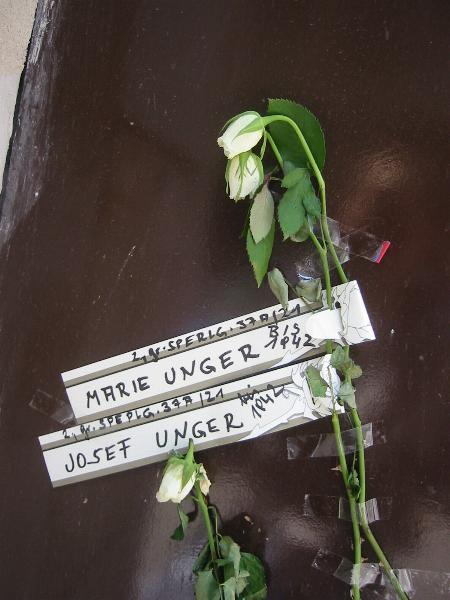 2, gr. SPERLG. 37A/21
MARIE UNGER BIS 1942
2, gr. SPERLG. 37A/21
JOSEF UNGER bis 1942